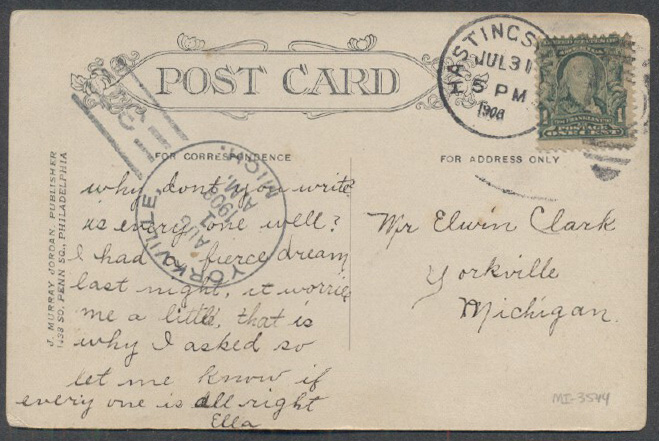 POST CARD
HASTINGS
JUL 31
5 PM
1908
UNITED STATES OF AMERICA
1 1
POSTAGE
ONE CENT
FOR CORRESPONDENCE
FOR ADDRESS ONLY
J. MURRAY JORDAN, PUBLISHER
SO. PENN SQ., PHILADELPHIA
YORKVILLE
MICH.
AUG
1
A.M.
1908
why dont you write
is every one well?
I had a fierce dream
last night, it worries
me a little, that is
why I asked so
let me know if
every one is all right
Ella
Mr Elwin Clark
Yorkville
Michigan.
MI-3544